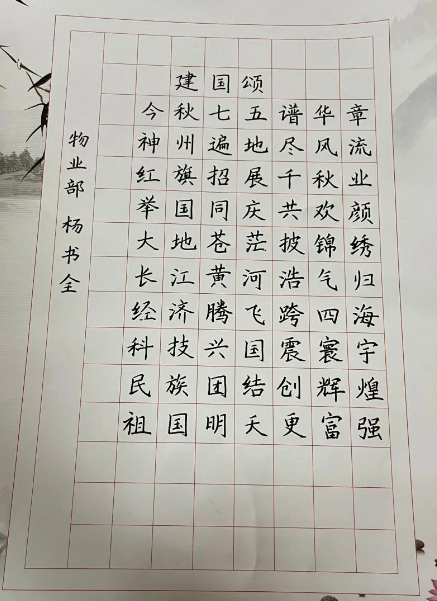 建国颂
今秋七五谱华章
神州遍地尽风流
红旗招展千秋业
举国同庆共欢颜
大地苍茫披锦绣
长江黄河浩气归
经济腾飞跨四海
科技兴国震寰宇
民族团结创辉煌
祖国明天更富强
物业部 杨书全